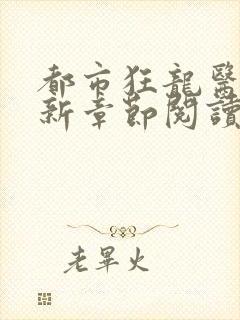 都市狂龍醫
新章節閱讀
老畢火